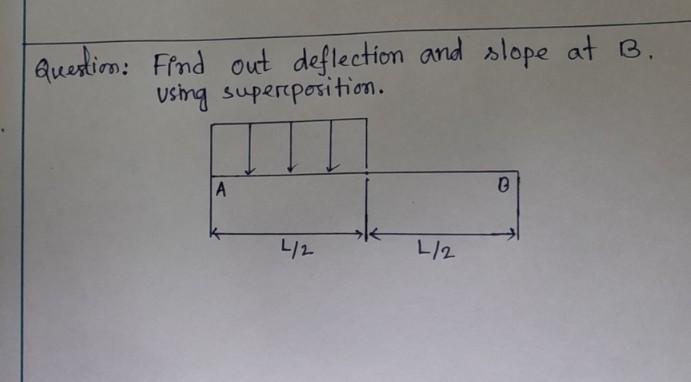 Question: Find out deflection and slope at B.
using superposition.
A B
L/2 L/2